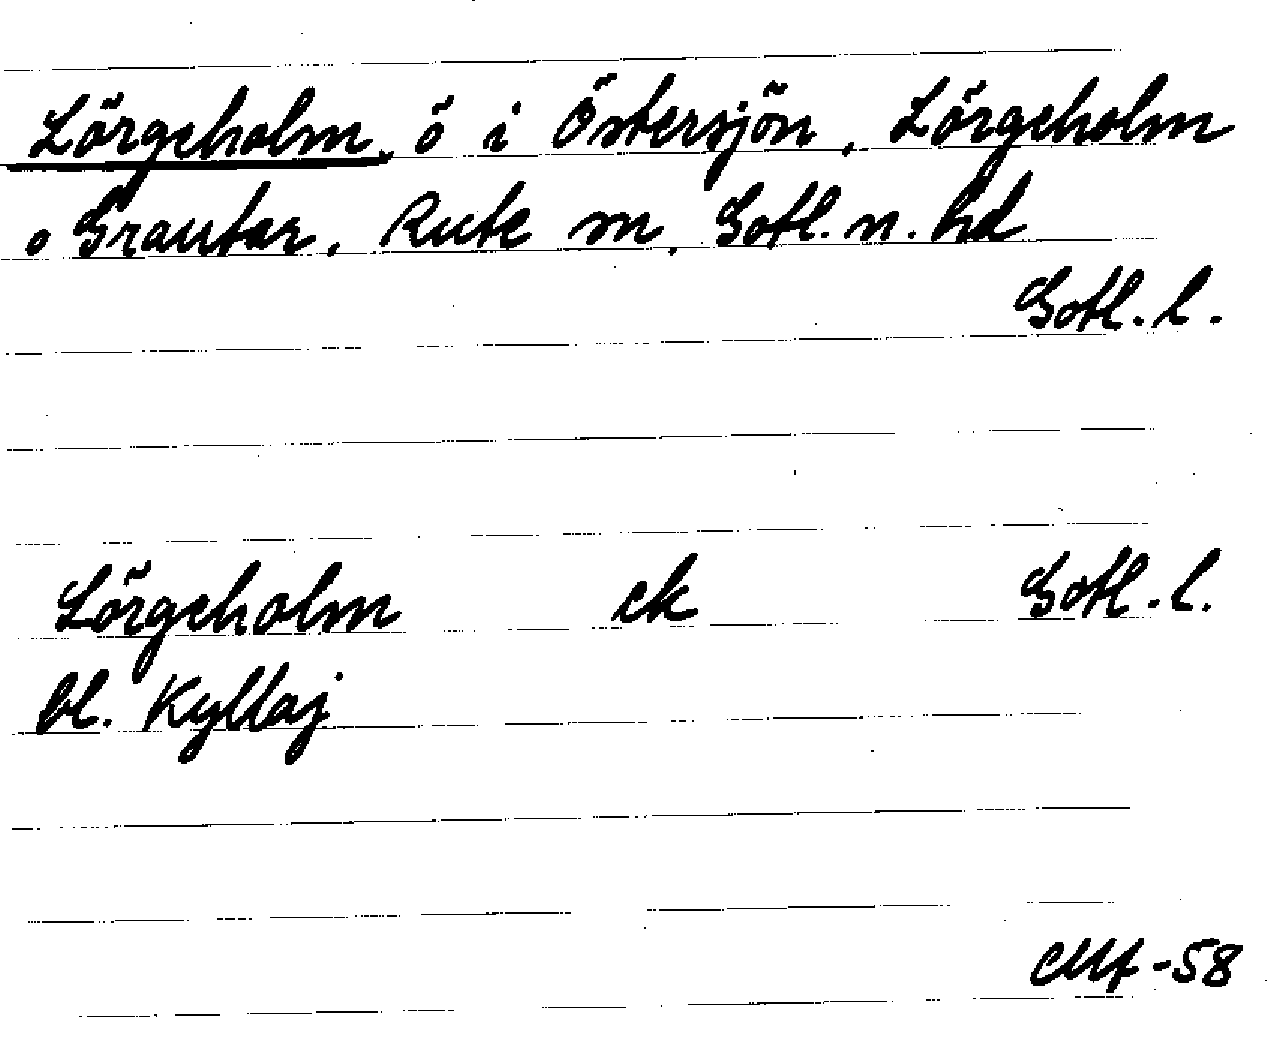 Lörgeholm, ö i Östersjön, Lörgeholm
o Grautar, Rute sn, Gotl. n. hd
Gotl. l.
Lörgeholm ek Gotl. l.
bl. Kyllaj
-58